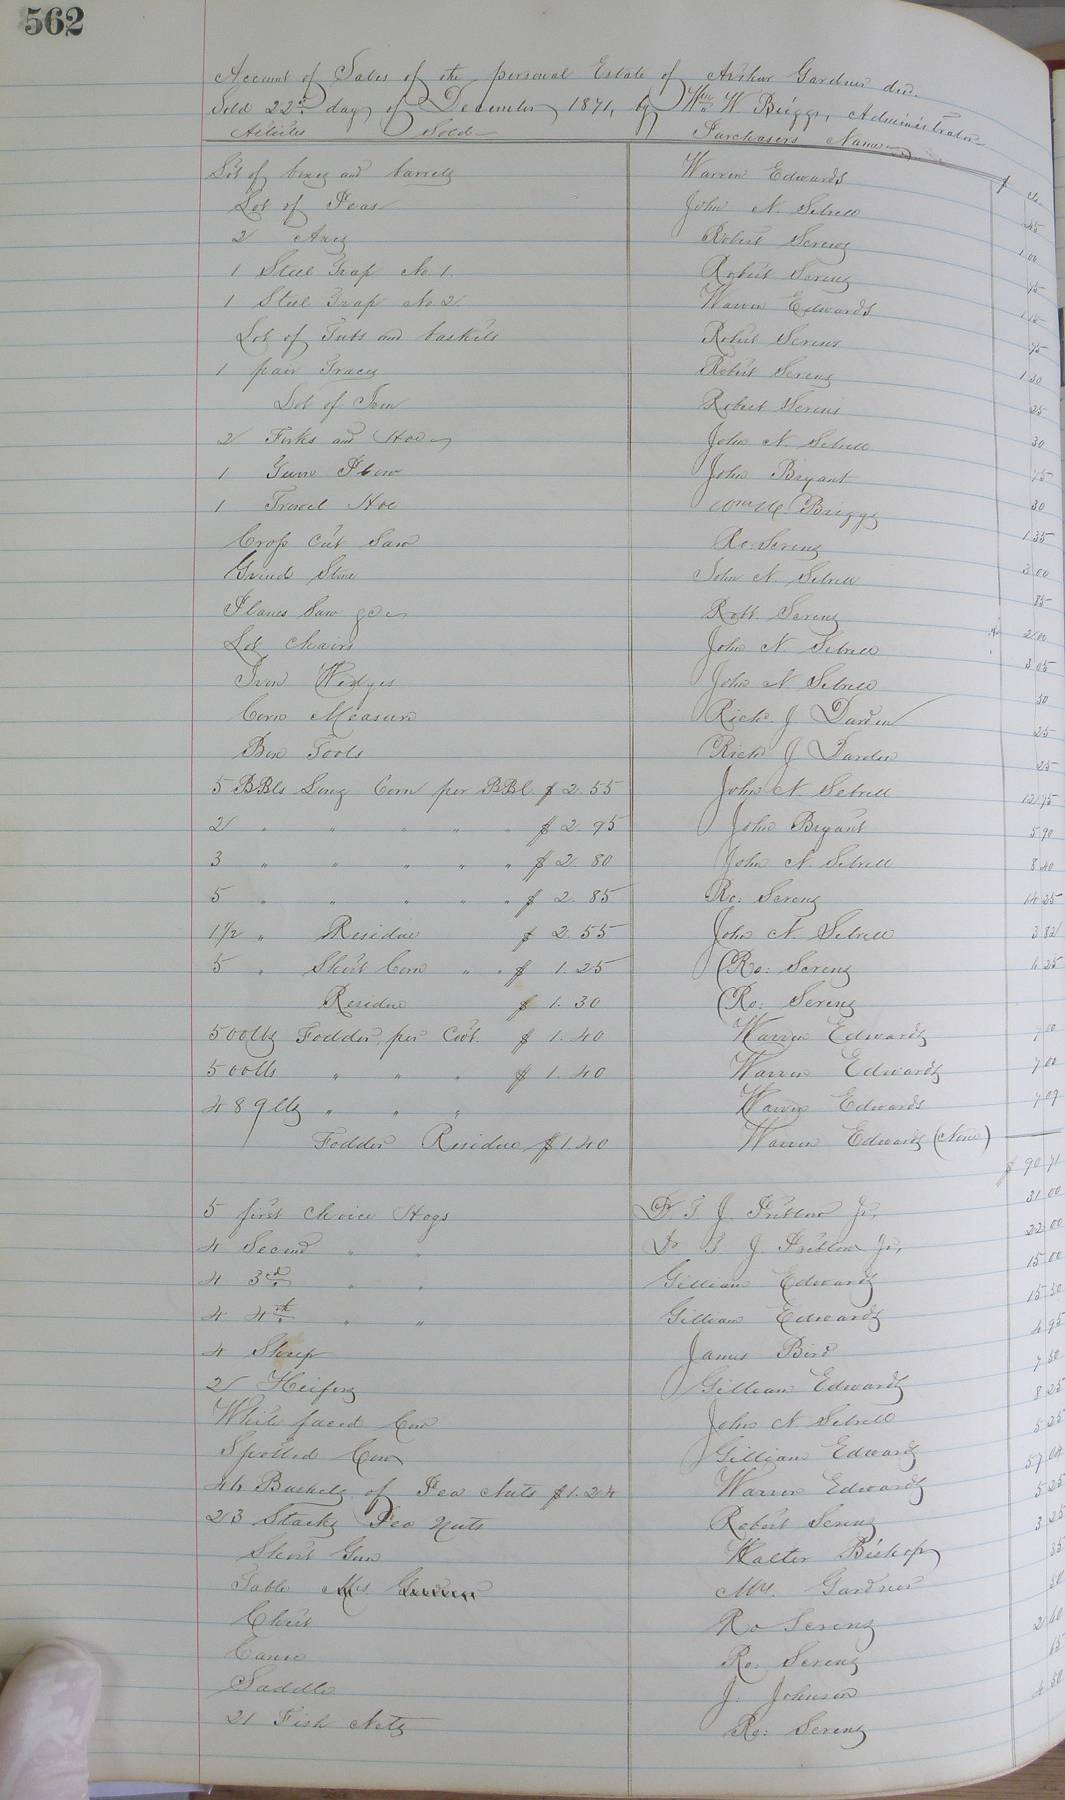 562
Account of Sales of the personal Estate of Arthur Gardner decd.
Sold 22d day of December 1871, by Wm W Briggs, Administrator
Articles Sold Purchasers Names $ cts
Lot of boxes and barrels Warren Edwards 45
Lot of Peas John N. Sebrell 1 00
2 Axes Robert Screws 75
1 Steel Trap No 1. Robert Screws
1 Steel Trap No 2 Warren Edwards 75
Lot of Tubs and baskets Robert Screws 1 30
1 pair Traces Robert Screws 25
Lot of Iron Robert Screws 30
2 Forks and Hoe John N. Sebrell 75
1 Turn Plow John Bryant 30
1 Trowel Hoe Wm W. Briggs 1 35
Cross Cut Saw Ro: Screws 3 00
Grind Stone John N. Sebrell 85
Planes Saw &c Robt. Screws 2 00
Lot Chairs John N. Sebrell 3 05
Iron Wedges John N Sebrell 50
Corn Measure Rich. J Darden 25
Box Tools Rich J. Darden 25
5 BBls Long Corn per BBl. $ 2.55 John N. Sebrell 12 75
2 " " " " " $ 2.95 John Bryant 5 90
3 " " " " " $ 2.80 John N. Sebrell 8 40
5 " " " " " $ 2.85 Ro: Screws 14 25
1 1/2 " Residue $ 2.55 John N. Sebrell 3 82
5 " Short Corn " " $ 1.25 (Ro: Screws 6 25
Residue $ 1.30 (Ro: Screws
500lbs Fodder per Cwt. $ 1.40 Warren Edwards 7 00
500lbs " " " $ 1.40 Warren Edwards 7 00
489lbs " " " Warren Edwards 7 09
Fodder Residue $1.40 Warren Edwards (None)
$ 90 71
5 first choice Hogs Dr T J. Pretlow Jr, 31 00
4 Second " " Dr T J. Pretlow Jr, 22 00
4 3rd " " Gilliam Edwards 15 00
4 4th " " Gilliam Edwards 15 50
4 Sheep James Bird 4 95
2 Heifers Gilliam Edwards 7 50
White faced Cow John N Sebrell 8 25
Spotted Cow Gilliam Edwards 5 25
46 Bushels of Pea Nuts $1.24 Warren Edwards 57 04
23 Stacks Pea Nuts Robert Screws 5 25
Short Gun Walter Bishop 3 25
Table Mrs. Mrs. Gardner 35
Chest Ro Screws 50
Canoe Ro: Screws 2 60
Saddle J. Johnson 65
21 Fish Nets Ro: Screws 4 50